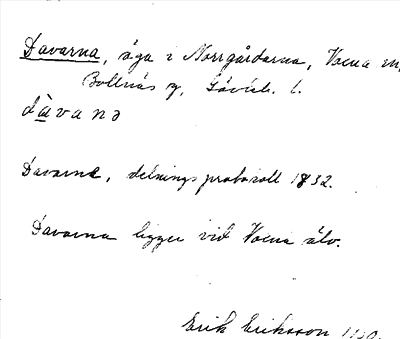 Davarna, äga i Norrgårdarna, Voxna
Bollnäs Gävleb. l.
dàvanə
Davarna, delningsprotokoll 1832.
Davarna ligger vid Voxna älv.
Erik Eriksson